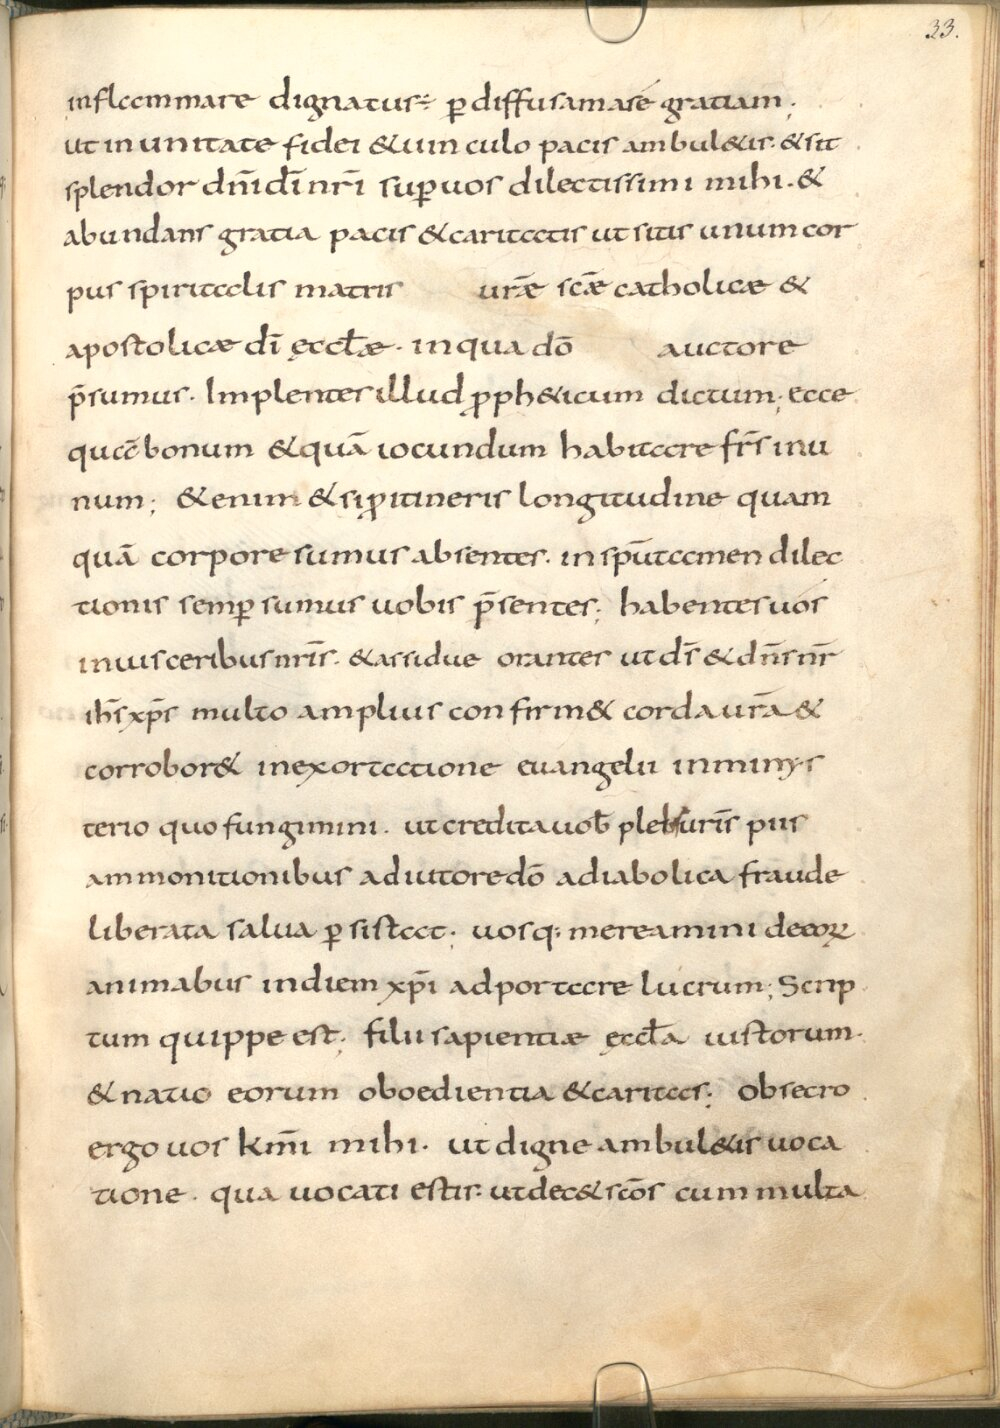 33.
inflammare dignatus: p̄ diffusam a se gratiam;
ut in unitate fidei & uinculo pacis ambul&is. & sit
splendor dn̄i dī nr̄i sup̄ uos dilectissimi mihi. &
abundans gratia pacis & caritatis ut sitis unum cor
pus spiritalis matris urǣ scǣ catholicæ &
apostolicæ dī ęccl̄æ. in qua dō auctore
p̄sumus. Implentes illud p̱roph&icum dictum; ecce
quā bonum & quā iocundum habitare fr̄s in u
num; & enim & si p̱ro itineris longitudine quam
quā corpore sumus absentes. in sp̄u tamen dilec
tionis semp̄ sumus uobis p̄sentes; habentes uos
in uisceribus nr̄is. & assidue orantes ut ds̄ & dn̄s nr̄
ih̄s xp̄s multo amplius confirm& corda ur̄a &
corrobor& in exortatione euangelii in minys
terio quo fungimini. ut credita uob̄ plebs ur̄is piis
ammonitionibus adiutore dō a diabolica fraude
liberata salua p̄sistat. uosq; mereamini de eoꝝ
animabus in diem xp̄i adportare lucrum; Scrip
tum quippe est; filii sapientiæ ęccl̄a iustorum.
& natio eorum oboedientia & caritas; Obsecro
ergo uos km̄i mihi. ut digne ambul&is uoca
tione. qua uocati estis. ut dec& scōs cum multa